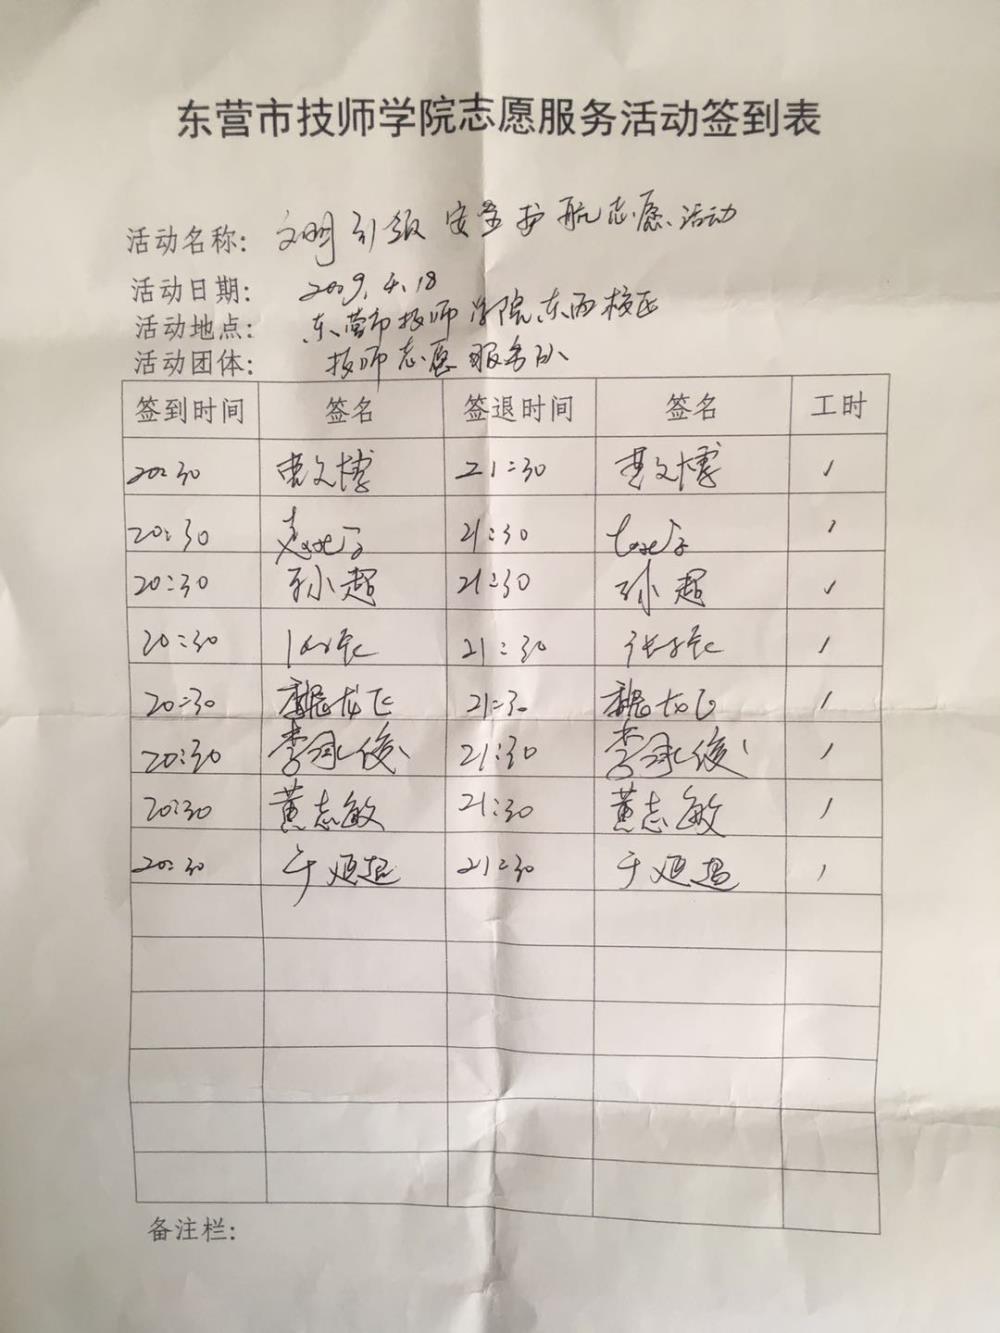 东营市技师学院志愿服务活动签到表
活动名称: 文明引领 安全护航志愿活动
活动日期: 2009.4.18
活动地点: 东营市技师学院东西校区
活动团体: 技师志愿服务队
签到时间 签名 签退时间 签名 工时
20:30 曹文博 21:30 曹文博 1
20:30 21:30 1
20:30 孙超 21:30 孙超 1
20:30 21:30 1
20:30 魏龙飞 21:30 魏龙飞 1
20:30 李承俊 21:30 李承俊 1
20:30 黄志敏 21:30 黄志敏 1
20:30 于 21:30 于 1
备注栏: